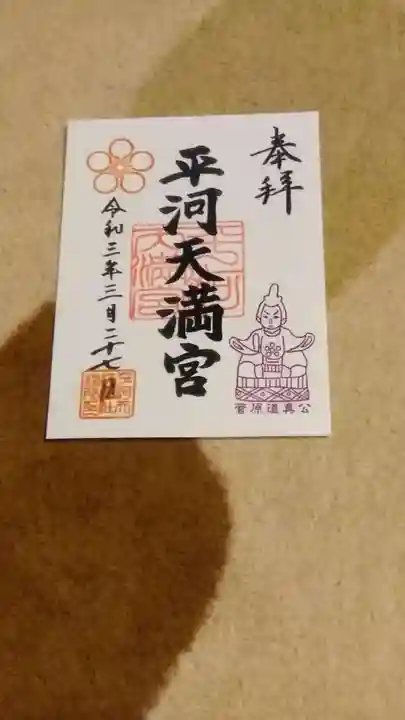 奉拝
平河天満宮
令和三年三月二十七日
菅原道真公